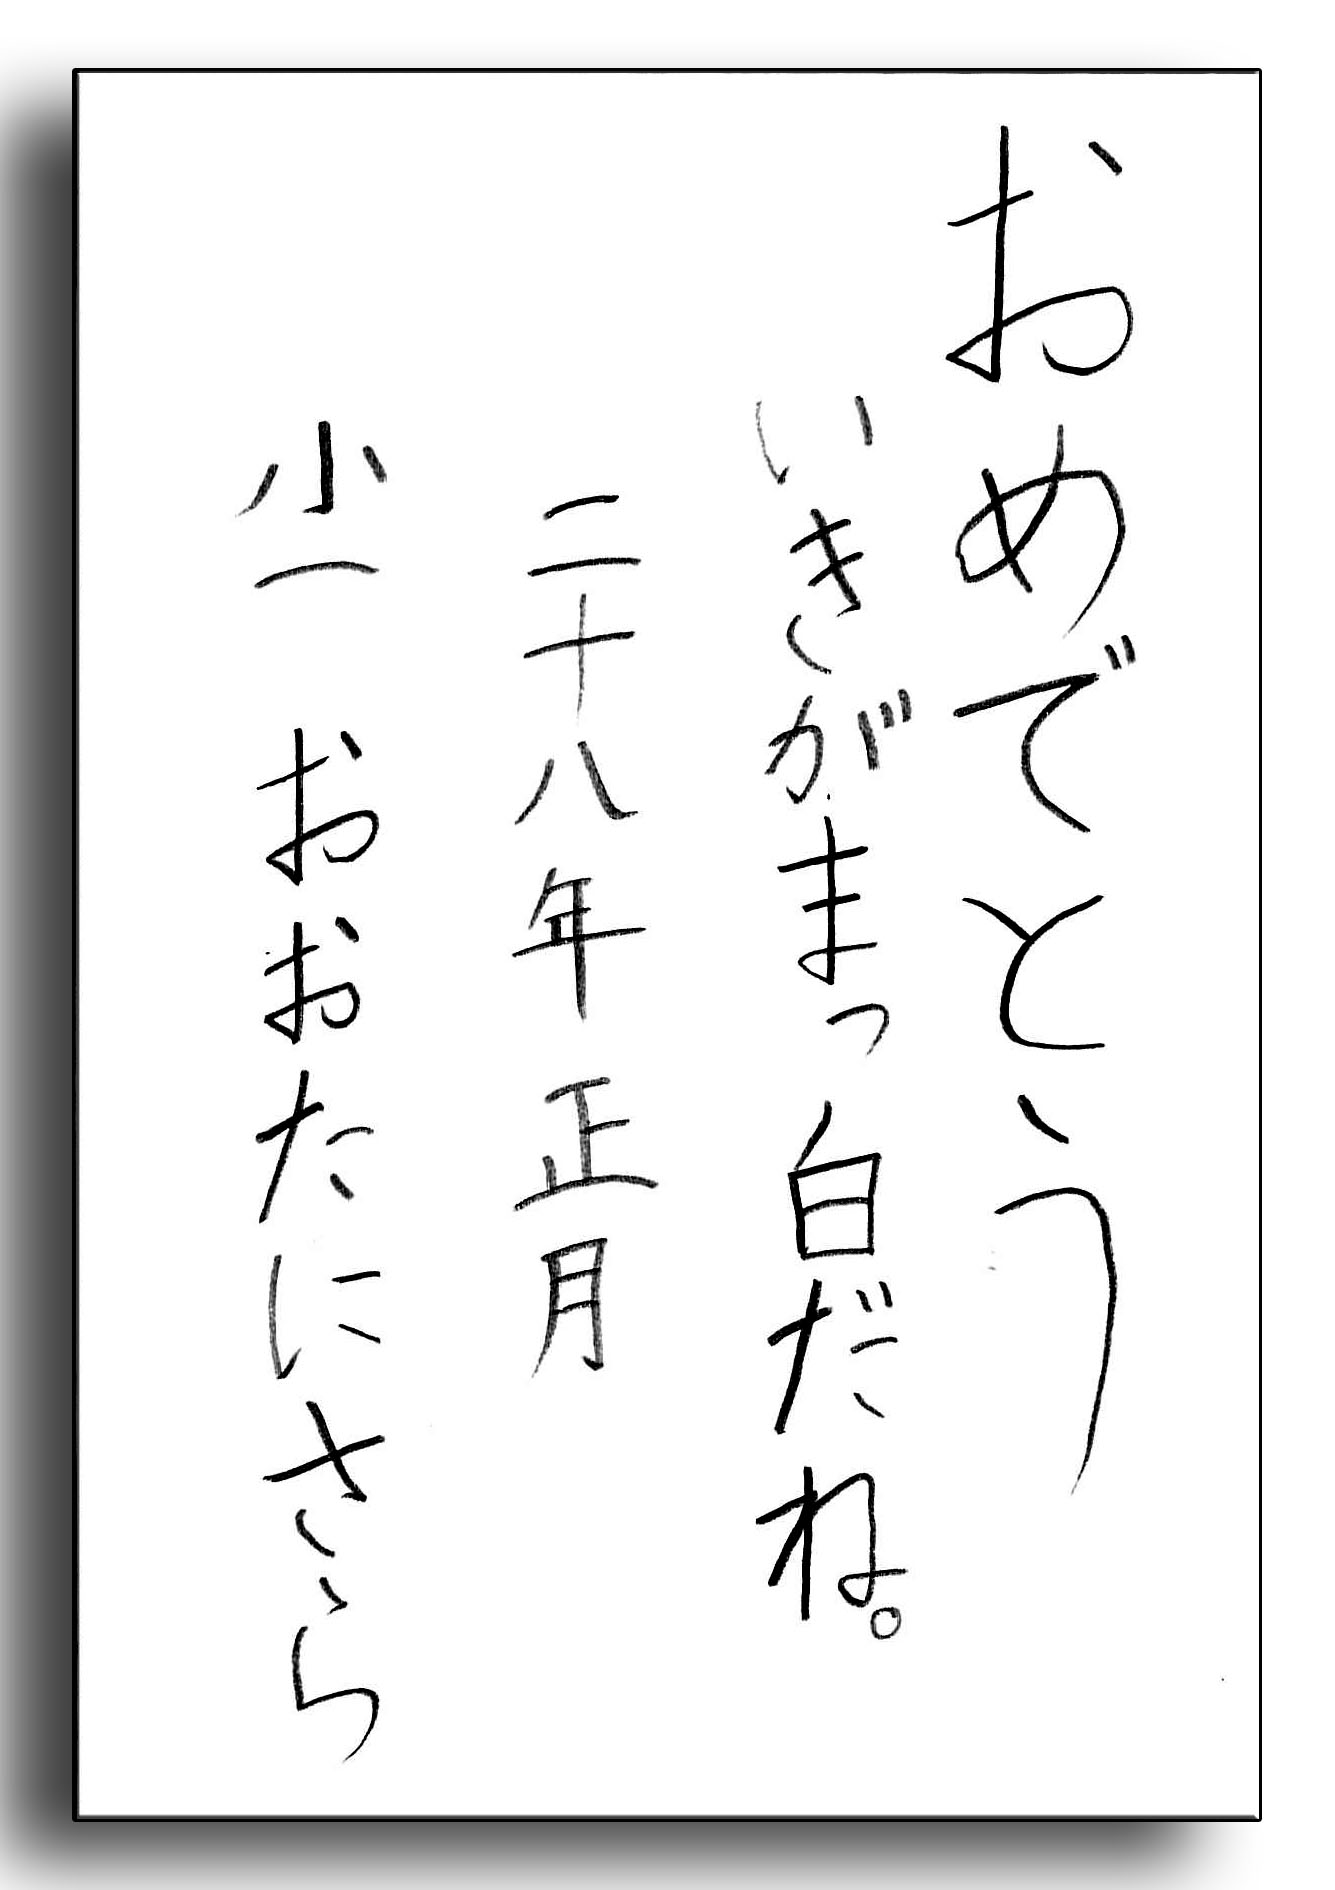 おめでとう
いきがまっ白だね。
二十八年正月
小一 おおたにさら